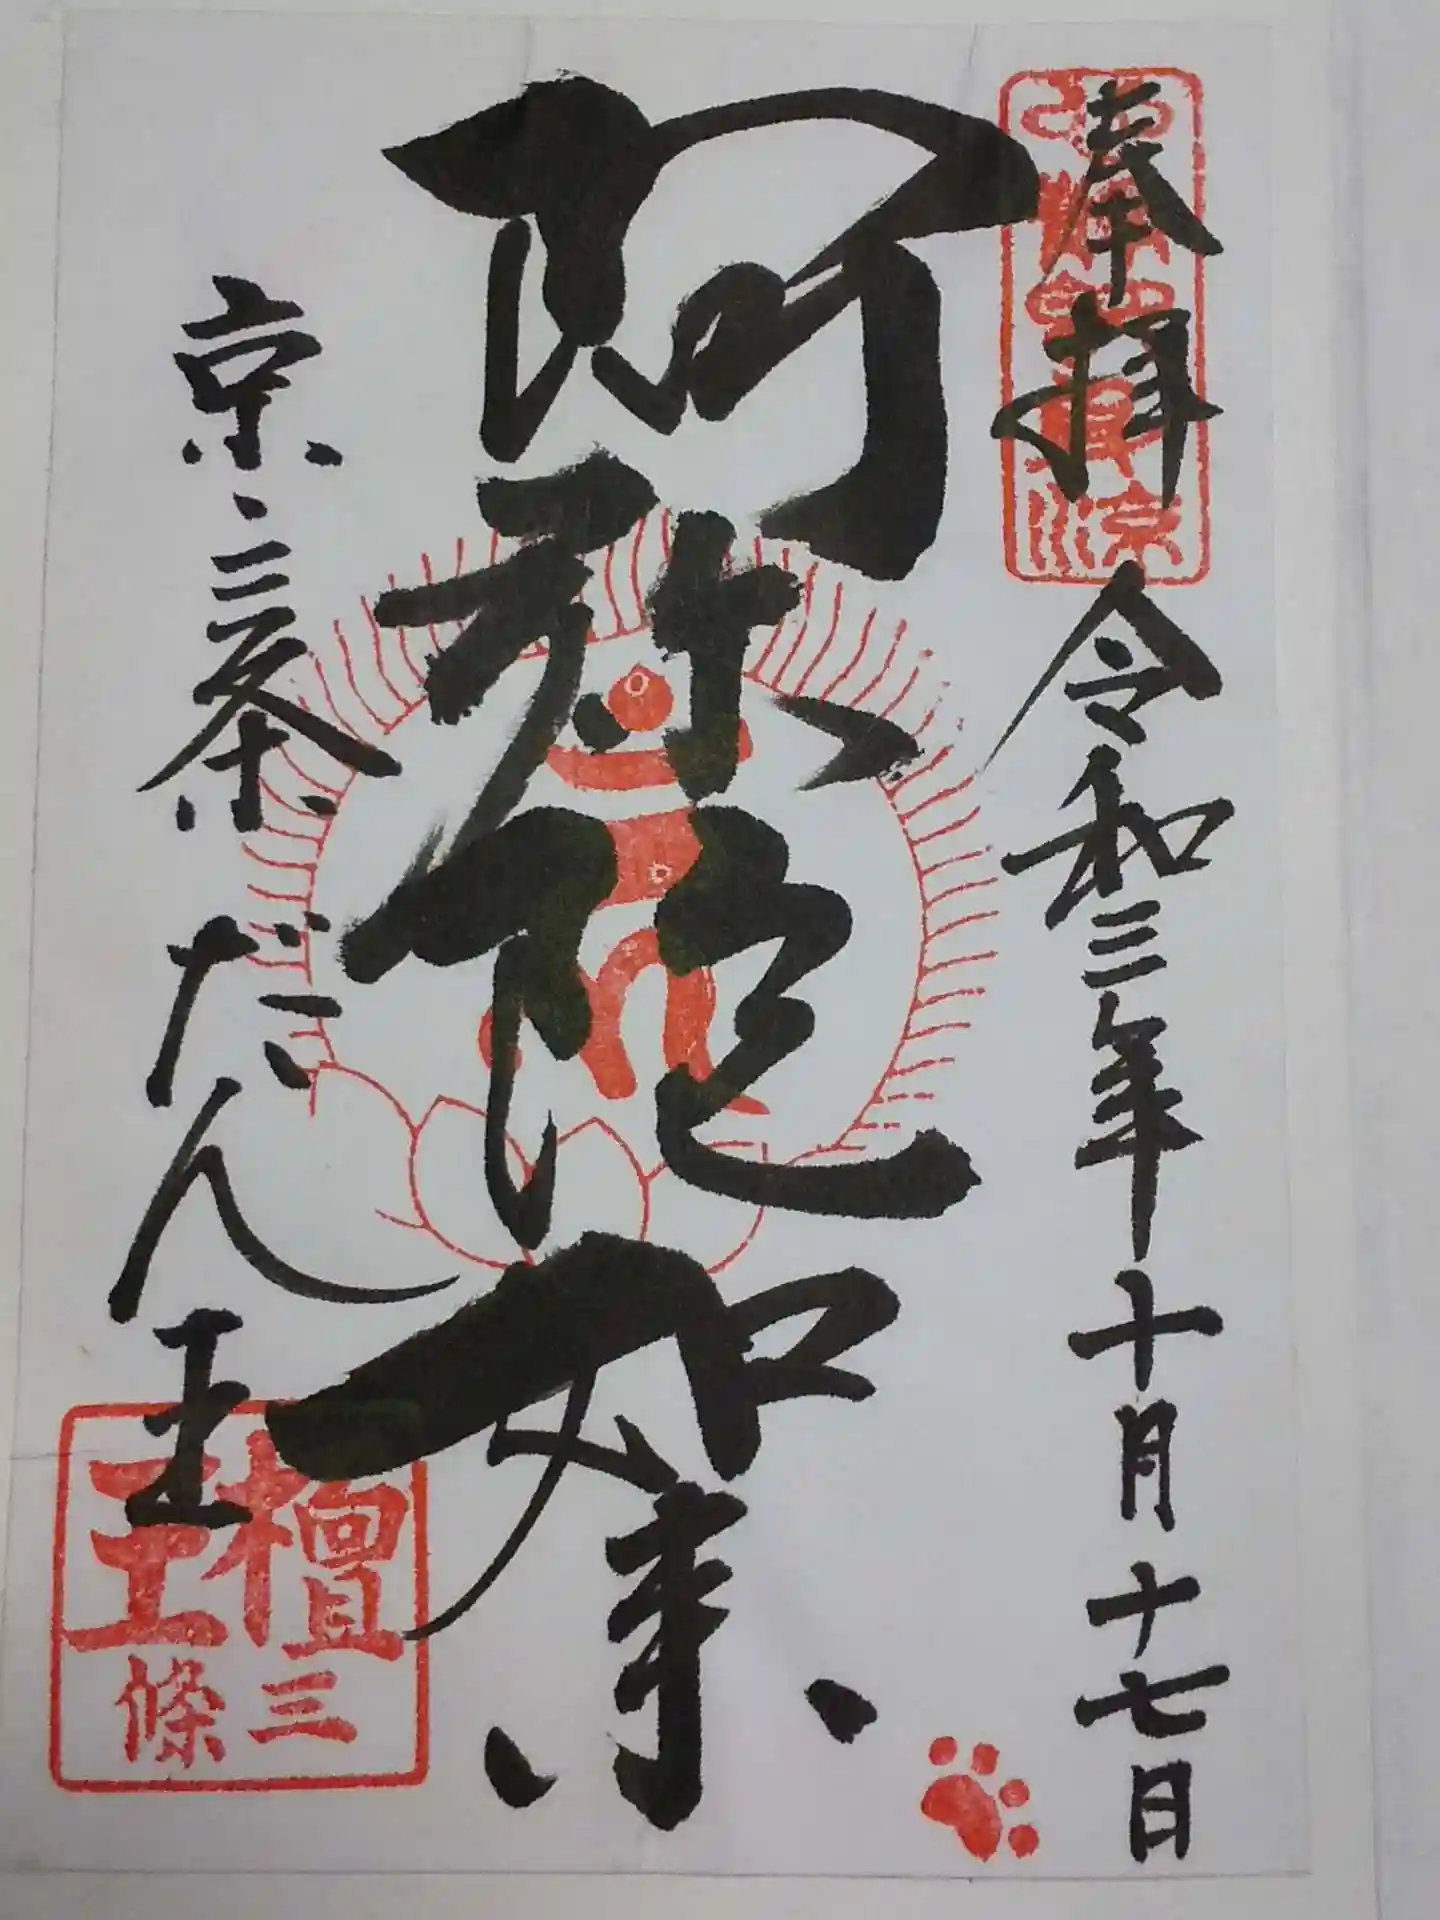 奉拝
令和三年十月十七日
阿弥陀如来
京・三条
だん王
檀王
三條